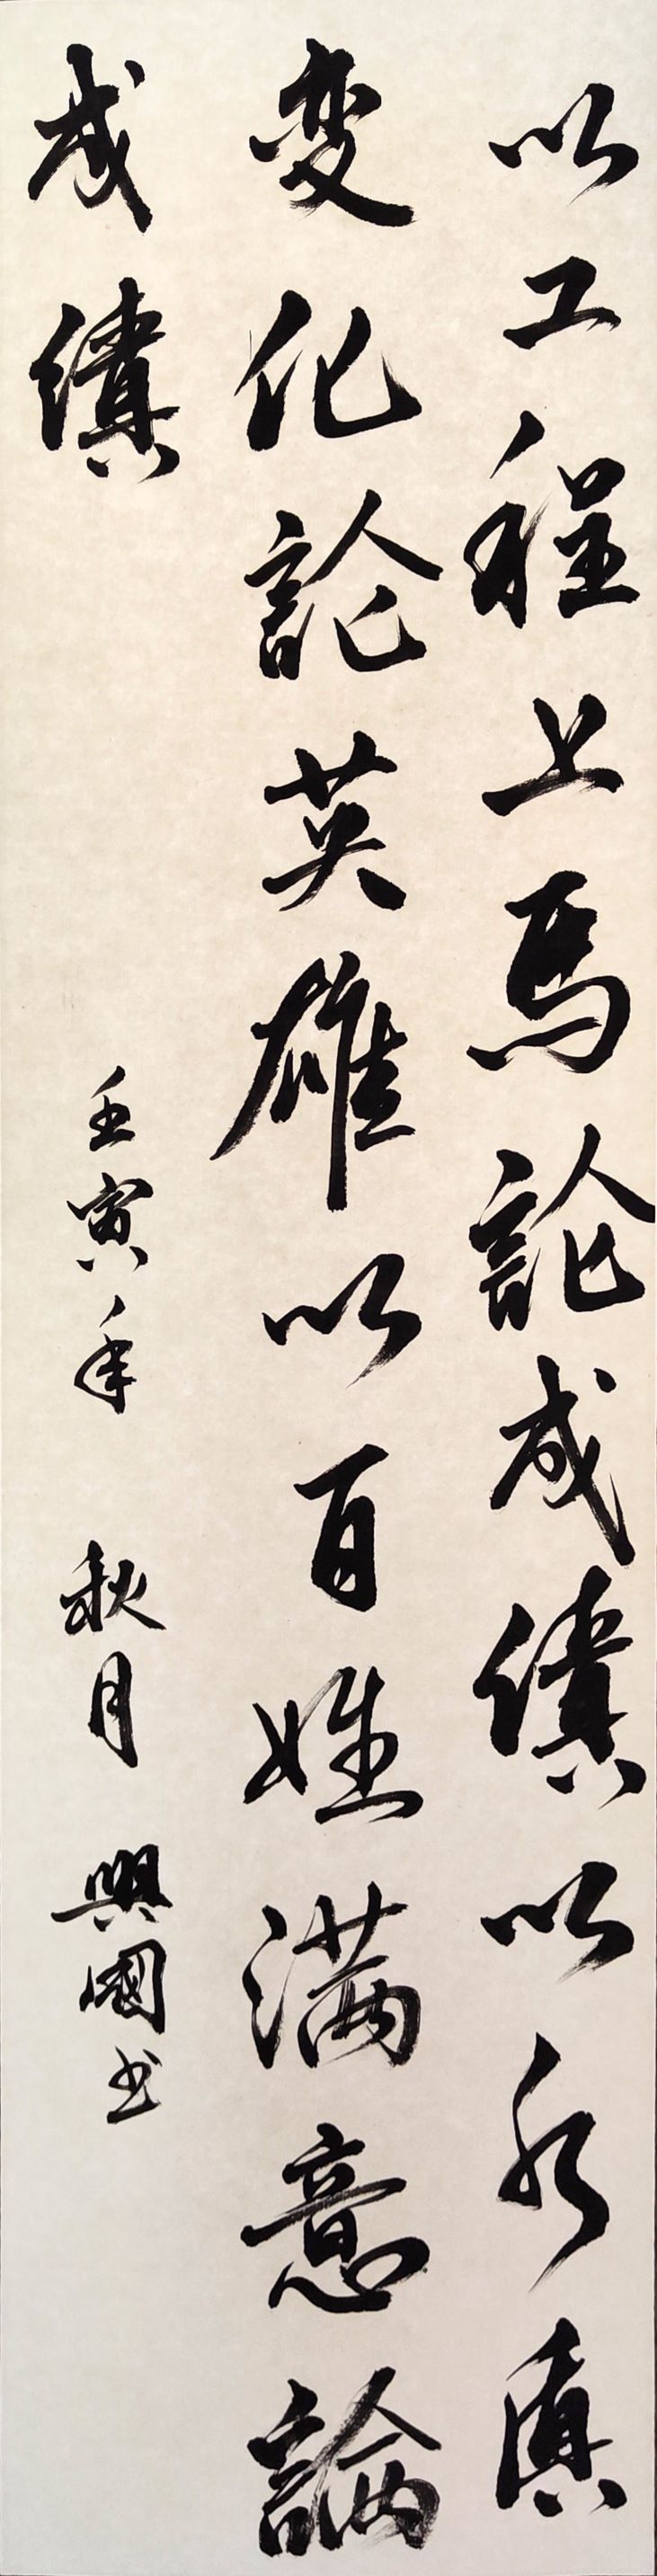 以工程上马論成績以水质
变化論英雄以百姓满意論
成績
壬寅年 秋月 興國书